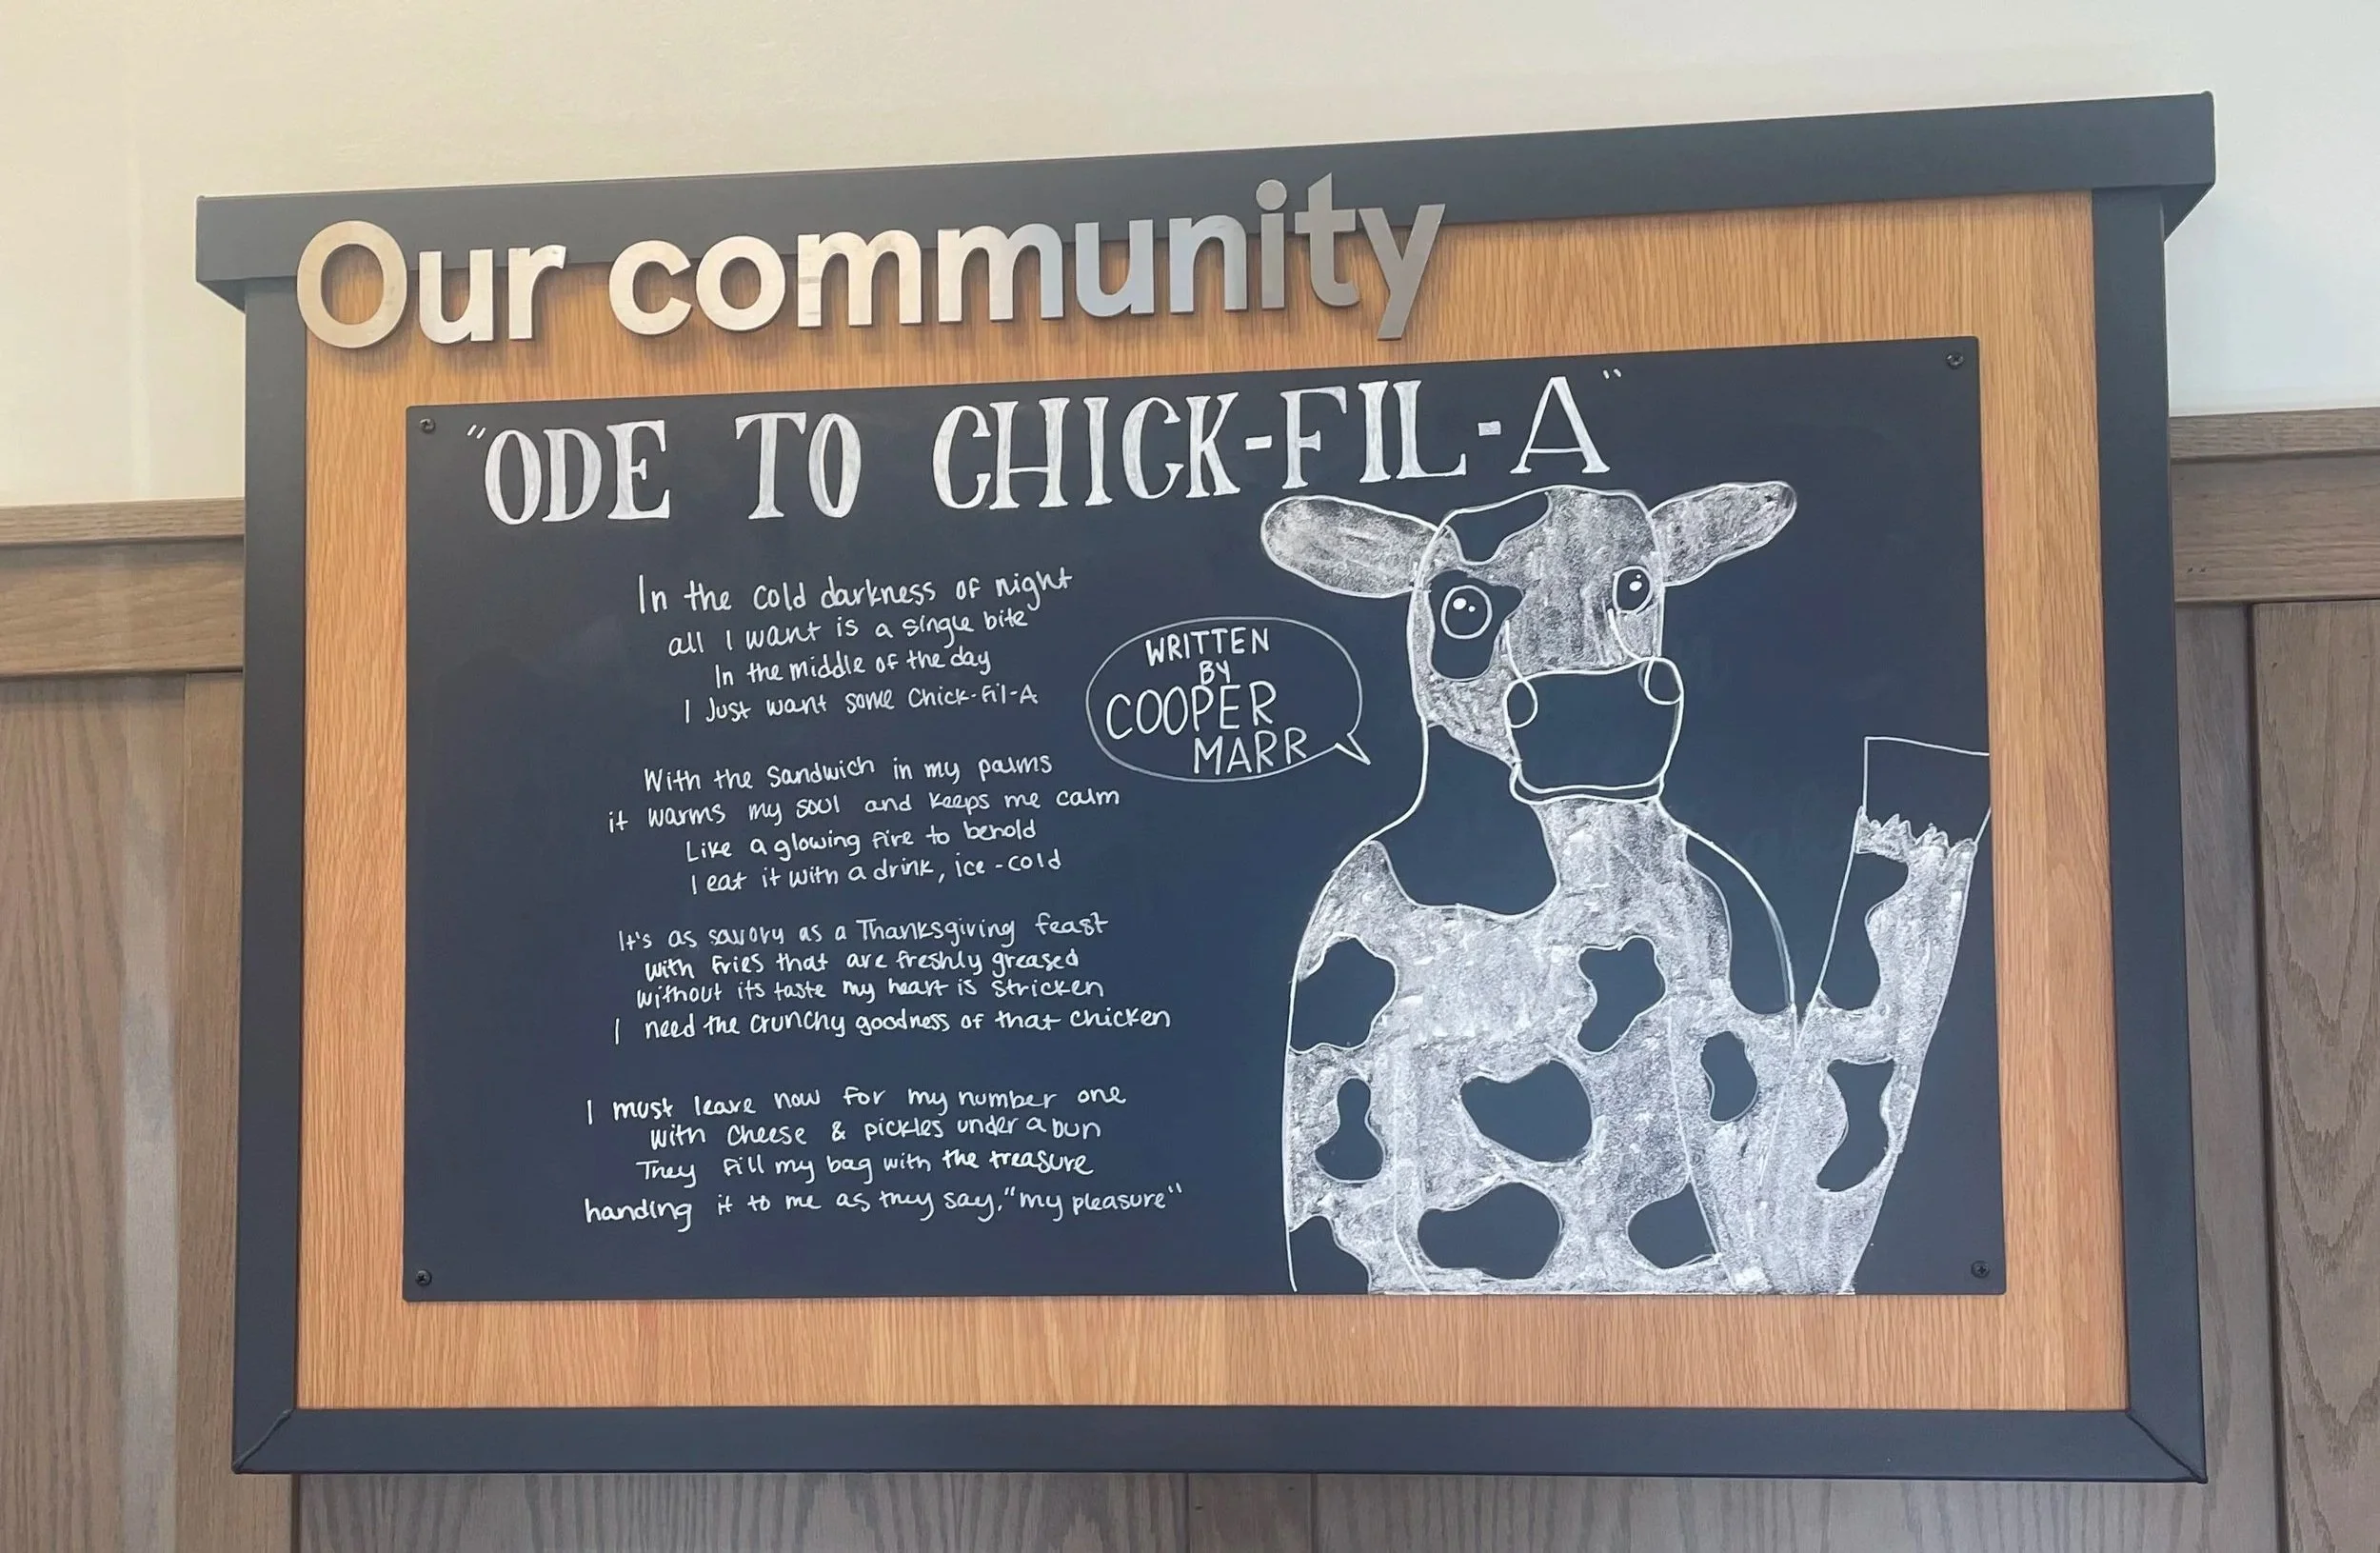 Our community
"ODE TO CHICK-FIL-A"
In the cold darkness of night
all I want is a single bite
In the middle of the day
I Just want some Chick-fil-A
With the sandwich in my palms
it warms my soul and keeps me calm
Like a glowing fire to behold
I eat it with a drink, ice-cold
It's as savory as a Thanksgiving feast
with fries that are freshly greased
without its taste my heart is stricken
I need the crunchy goodness of that chicken
I must leave now for my number one
with cheese & pickles under a bun
They fill my bag with the treasure
handing it to me as they say, "my pleasure"
WRITTEN
BY
COOPER
MARR